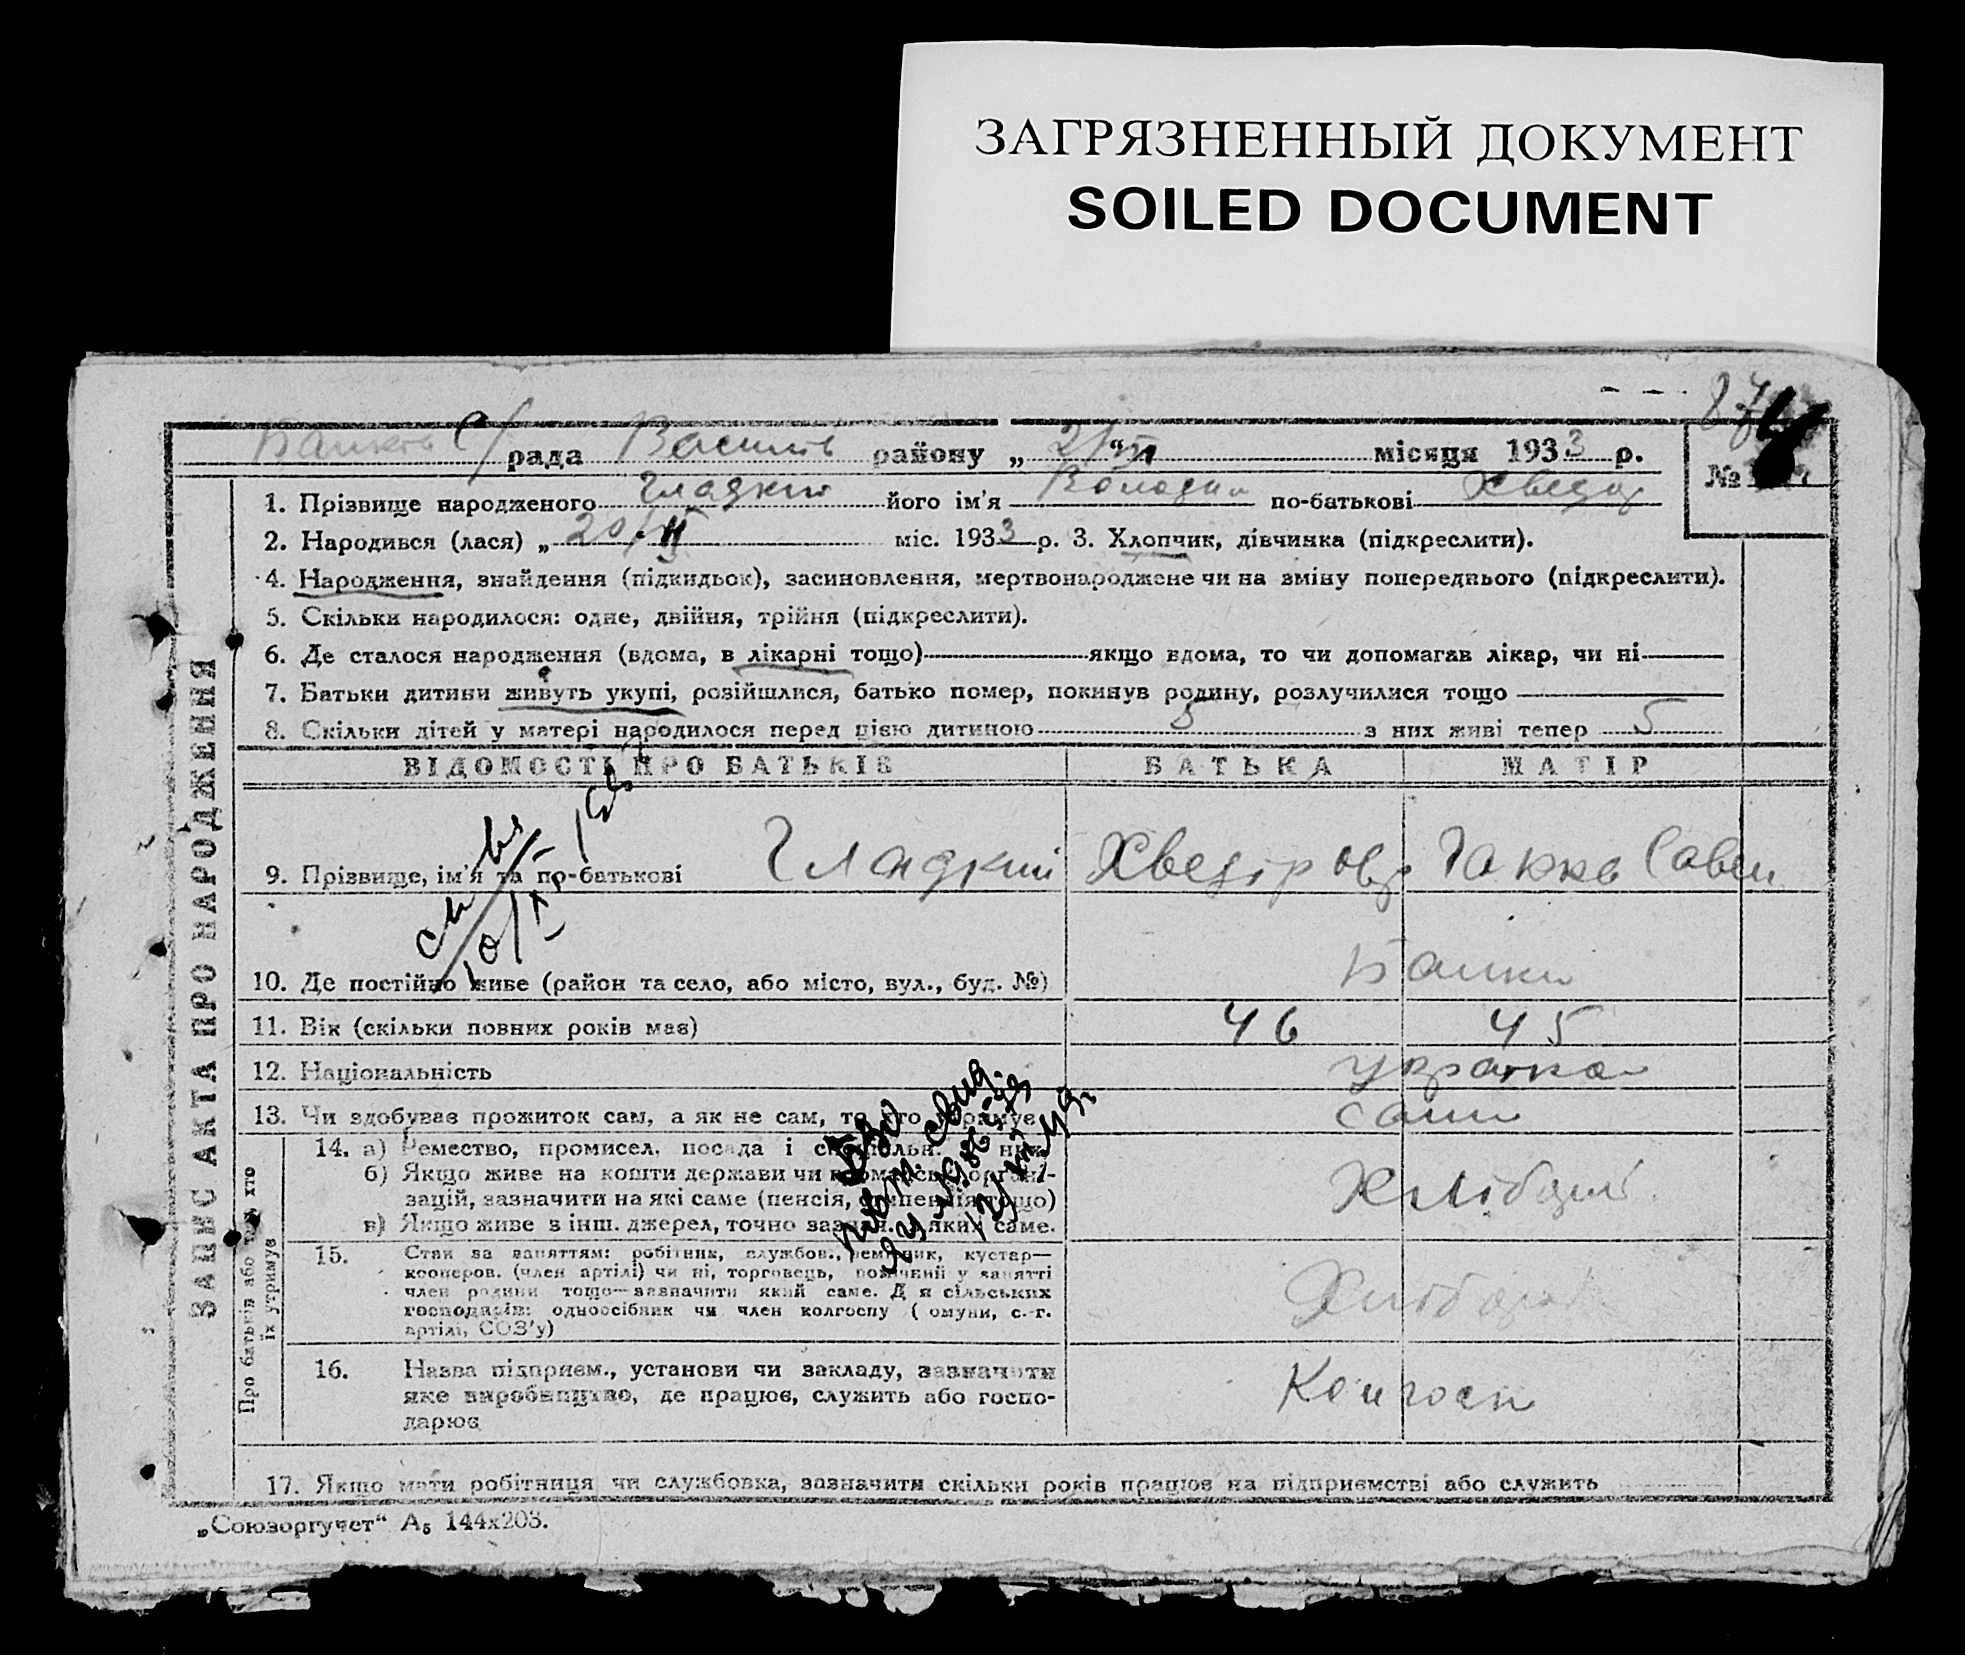 ЗАГРЯЗНЕННЫЙ ДОКУМЕНТ
SOILED DOCUMENT
рада район у „ 21 “ місяця 1933 р.
№ 4
ЗАПИС АКТА ПРО НАРОДЖЕННЯ
1. Прізвище народженого Гладкий його ім'я Володим по-батькові Хведор
2. Народився (лася) „ 20/II міс. 1933 р. 3. Хлопчик, дівчинка (підкреслити).
4. Народження, знайдення (підкидьок), засиновлення, мертвонароджене чи на зміну попереднього (підкреслити).
5. Скільки народилося: одне, двійня, трійня (підкреслити).
6. Де сталося народження (вдома, в лікарні тощо) якщо вдома, то чи допомагав лікар, чи ні
7. Батьки дитини живуть укупі, розійшлися, батько помер, покинув родину, розлучилися тощо
8. Скільки дітей у матері народилося перед цією дитиною 5 з них живі тепер 5
ВІДОМОСТІ ПРО БАТЬКІВ БАТЬКА МАТІР
9. Прізвище, ім'я та по-батькові Гладкий Хведір Савел
10. Де постійно живе (район та село, або місто, вул., буд. №) Банки
11. Вік (скільки повних років має) 46 45
12. Національність
13. Чи здобуває прожиток сам, а як не сам, то хто утримує сами
Про батьків або тих хто їх утримує
14. а) Ремество, промисел, посада і
б) Якщо живе на кошти держави чи громадськ. органі-
зацій, зазначити на які саме (пенсія, стипендія тощо)
в) Якщо живе з інш. джерел, точно зазнач. яких саме.
Хлібороб
15. Стан за заняттям: робітник, службов., ремісник, кустар—
кооперов. (член артілі) чи ні, торговець, помічний у занятті
член родини тощо—зазначити який саме. Для сільських
господарів: одноосібник чи член колгоспу (комуни, с.-г.
артілі, СОЗ'у)
Хлібороб
16. Назва підприєм., установи чи закладу, зазначити
яке виробництво, де працює, служить або госпо-
дарює
Колгосп
17. Якщо мати робітниця чи службовка, зазначити скільки років працює на підприємстві або служить
„Союзоргучет“ А5 144х203.